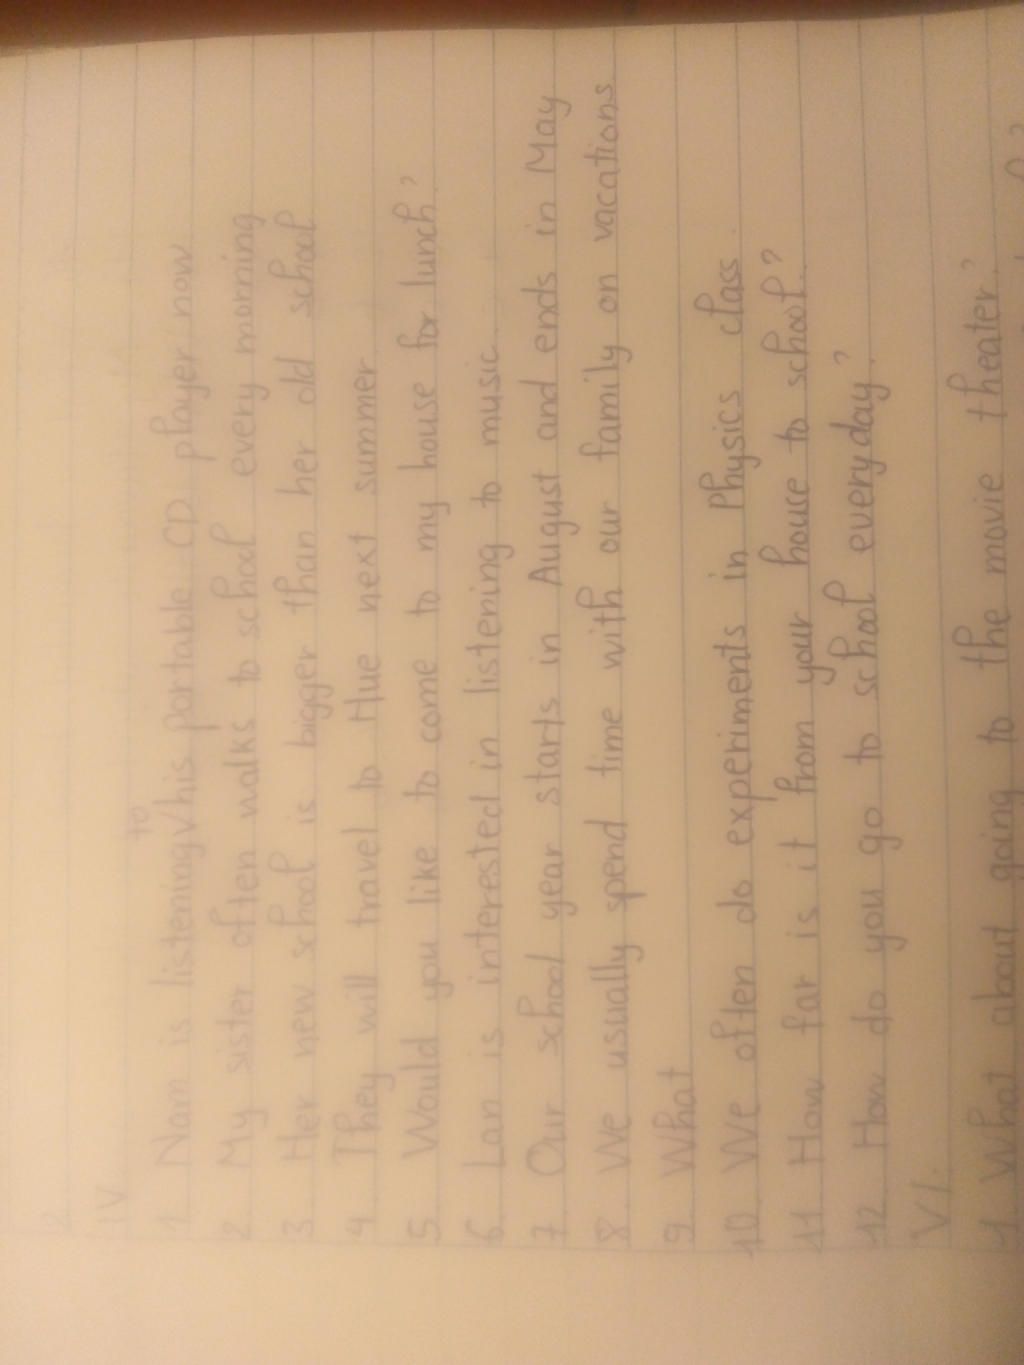 2
IV.
1. Nam is listening to his portable CD player now
2. My sister often walks to school every morning
3. Her new school is bigger than her old school
4. They will travel to Hue next summer
5. Would you like to come to my house for lunch?
6. Lan is interested in listening to music.
7. Our school year starts in August and ends in May
8. We usually spend time with our family on vacations
9. What
10. We often do experiments in Physics class
11. How far is it from your house to school?
12. How do you go to school everyday?
VI.
1. What about going to the movie theater?